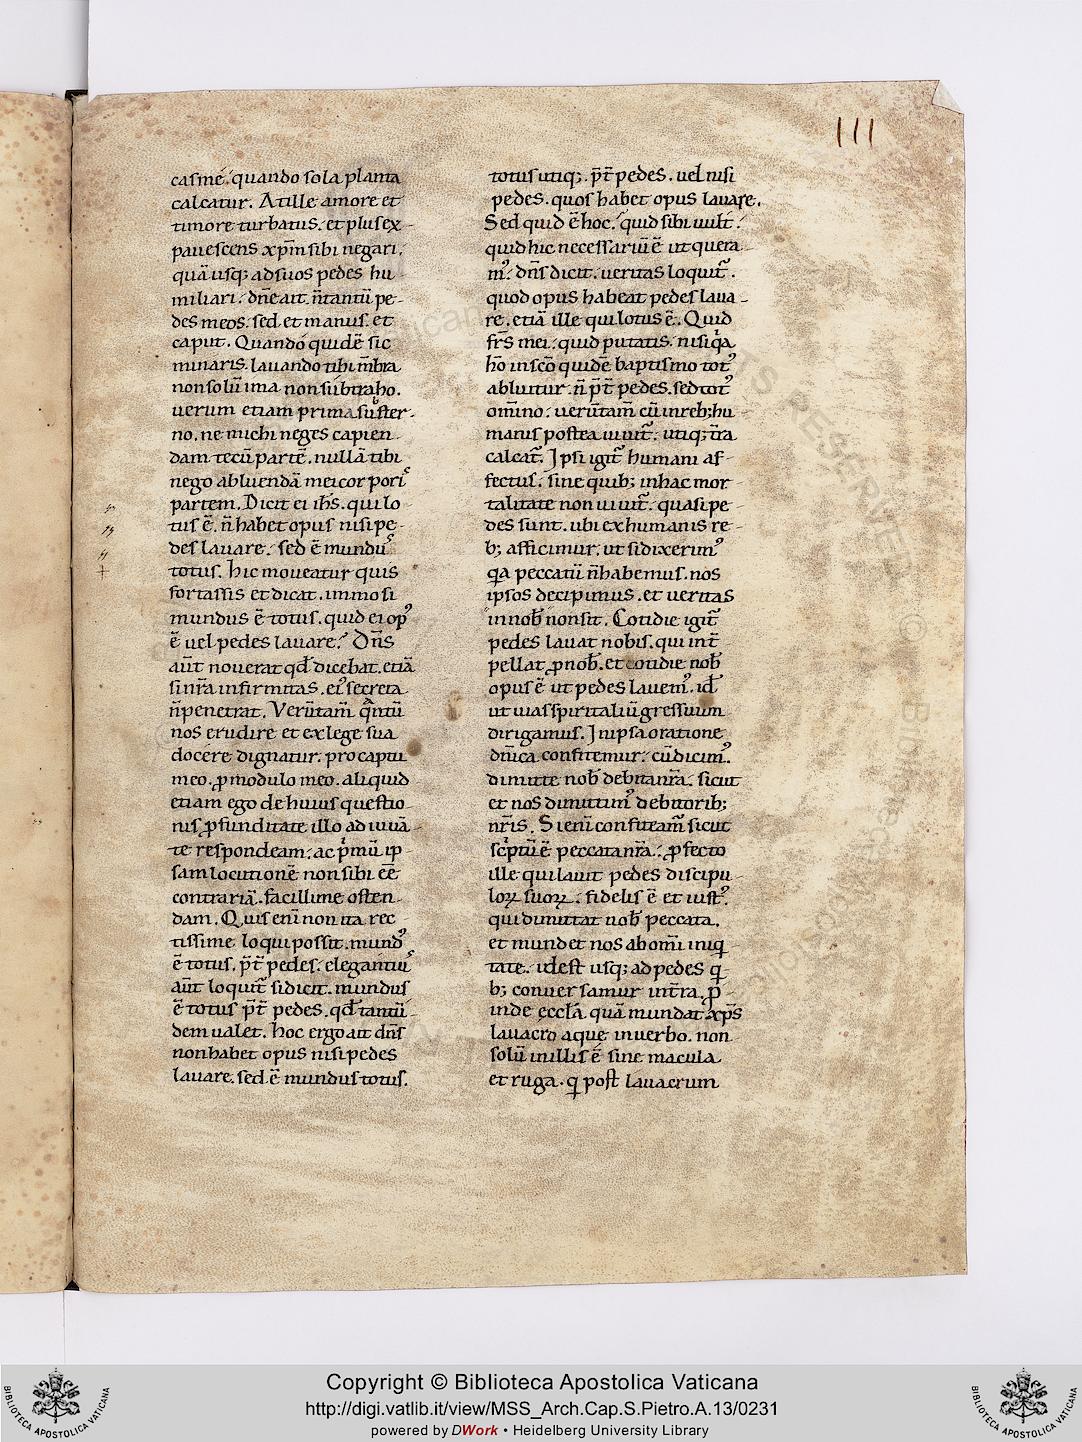 111
casme. quando sola planta
calcatur. At ille amore et
timore turbatus. et plus ex-
pauescens xp̄m sibi negari.
quā usq; ad suos pedes hu-
miliari. dn̄e ait. n̄ tantū pe-
des meos. sed et manus. et
caput. Quando quidē sic
minaris. lauando tibi m̄bra
non solū ima non subtraho.
uerum etiam prima suƀster-
no. ne michi neges capien-
dam tecū partē. nullā tibi
nego abluendā mei corporiꝰ
partem. Dicit ei ih̄s. qui lo-
tus ē. n̄ habet opus nisi pe-
des lauare. sed ē munduꝰ
totus. Hic moueatur quis
fortassis et dicat. immo si
mundus ē totus. quid ei opꝰ
ē uel pedes lauare? Dn̄s
aūt nouerat qđ dicebat. etiā
si nr̄a infirmitas. eiꝰ secreta
n̄ penetrat. Verūtam̄ qͣntū
nos erudire et ex lege sua
docere dignatur. pro captu
meo. ꝓ modulo meo. aliquid
etiam ego de huius questio-
nis ꝓfunditate illo adiuuā-
te respondeam. ac pͥmū ip-
sam locutionē non sibi eē
contrariā. facillime osten-
dam. Quis enī non ita rec-
tissime loqui possit. mundꝰ
ē totus. p̄t̄ pedes. elegantiuꝰ
aūt loquit᷑ si dicit. mundus
ē totus p̄t̄ pedes. qđ tantū-
dem ualet. hoc ergo ait dn̄s
non habet opus nisi pedes
lauare. sed ē mundus totus.
totus utiq;. p̄t̄ pedes. uel nisi
pedes. quos habet opus lauare.
Sed quid ē hoc. quid sibi uult.
quid hic necessariū ē ut quera-
mꝰ? dn̄s dicit. ueritas loquit᷑.
quod opus habeat pedes laua-
re. etiā ille qui lotus ē. Quid
fr̄s mei. quid putatis. nisi qͥa
hō in scō quidē baptismo totꝰ
abluitur. n̄ p̄t̄ pedes. sed totꝰ
omīno. uerūtam̄ cū in reb; hu
manis postea uiuit᷑. utiq; t̄ra
calcat᷑. Ipsi igit᷑ humani af-
fectus. sine quib; in hac mor-
talitate non uiuit᷑. quasi pe-
des sunt. ubi ex humanis re-
b; afficimur. ut si dixerimꝰ
qͣa peccatū n̄ habemus. nos
ipsos decipimus. et ueritas
in nob̄ non sit. Cotidie igit᷑
pedes lauat nobis. qui int̄
pellat ꝓ nob̄. et cotidie nob̄
opus ē ut pedes lauemꝰ. id̄
ut uias spiritaliū gressuum
dirigamus. In ipsa oratione
dn̄ica confitemur. cū dicimꝰ.
dimitte nob̄ debita nr̄a. sicut
et nos dimittimꝰ debitorib;
nr̄is. Si enī confiteam᷑ sicut
scͥptū ē peccata nr̄a. ꝓfecto
ille qui lauit pedes discipu-
loꝝ suoꝝ. fidelis ē et iustꝰ.
qui dimittat nob̄ peccata.
et mundet nos ab omī iniqͥ-
tate. id est usq; ad pedes qͥ-
b; conuersamur in t̄ra. ꝓ-
inde eccl̄a. quā mundat xp̄s
lauacro aque in uerbo. non
solū in illis ē sine macula
et ruga. qͥ post lauacrum
Copyright © Biblioteca Apostolica Vaticana
http://digi.vatlib.it/view/MSS_Arch.Cap.S.Pietro.A.13/0231
powered by DWork • Heidelberg University Library
BIBLIOTECA APOSTOLICA VATICANA
BIBLIOTECA APOSTOLICA VATICANA